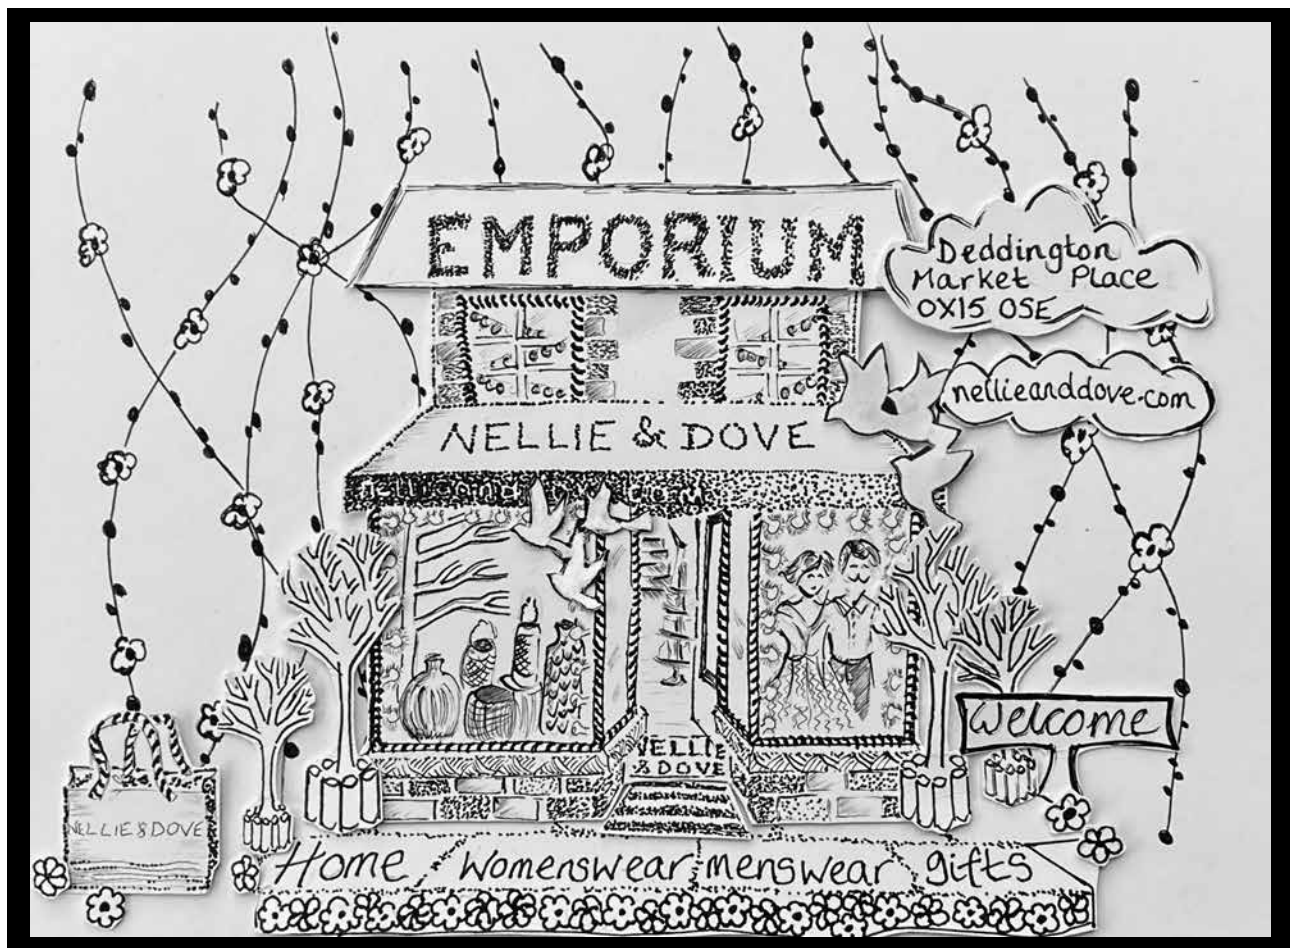 EMPORIUM
Deddington
Market Place
OX15 0SE
nellieanddove.com
NELLIE & DOVE
nellieanddove.com
Welcome
NELLIE
& DOVE
NELLIE & DOVE
Home Womenswear menswear gifts